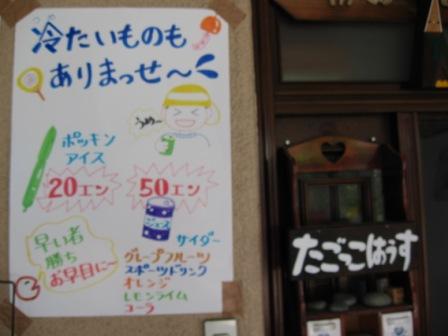 冷たいものも
ありまっせ〜
うめ〜
ポッキン
アイス
20エン
50エン
ジュース
早い者
勝ち
お早目に〜
サイダー
グレープフルーツ
スポーツドリンク
オレンジ
レモンライム
コーラ
たごっこはうす